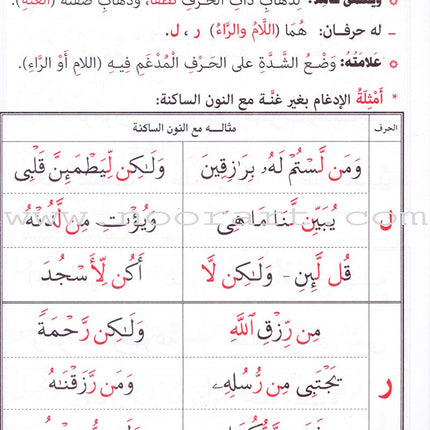 لذهابِ ذاتِ الحرفِ نُطقًا، وذهابِ صفتِه (الغُنَّة).
ـ له حرفـان: هُمَا (اللَّامُ والرَّاءُ) ر ، ل.
عَلامَتُهُ: وَضْعُ الشَّدَّةِ على الحَرْفِ المُدْغَمِ فِيهِ (اللامِ أوْ الرَّاءِ).
* أَمْثِلَةُ الإدغام بغير غنَّة مع النون الساكنة:
الحرف مثالـه مع النون الساكنة
وَمَن لَّسْتُمْ لَهُۥ بِرَٰزِقِينَ وَلَٰكِن لِّيَطْمَئِنَّ قَلْبِى
ل يُبَيِّن لَّنَا مَا هِىَ وَيُؤْتِ مِن لَّدُنْهُ
www.noorart.com
قُل لَّئِنِ - وَلَٰكِن لَّا أَكُن لِّأَسْجُدَ
مِن رِّزْقِ ٱللَّهِ وَلَٰكِن رَّحْمَةً
ر يَجْتَبِى مِن رُّسُلِهِۦ وَمَن رَّزَقْنَٰهُ